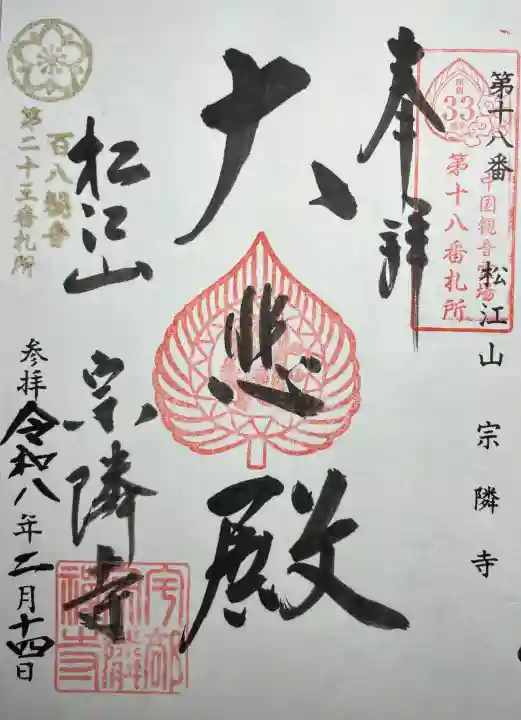 第十八番 松江山 宗隣寺
開創
33
周年
中国観音霊場
第十八番札所
奉拝
大悲殿
松江山 宗隣寺
百八観音
第二十五番札所
参拝 令和八年二月十四日
宇部
宗隣
禅寺